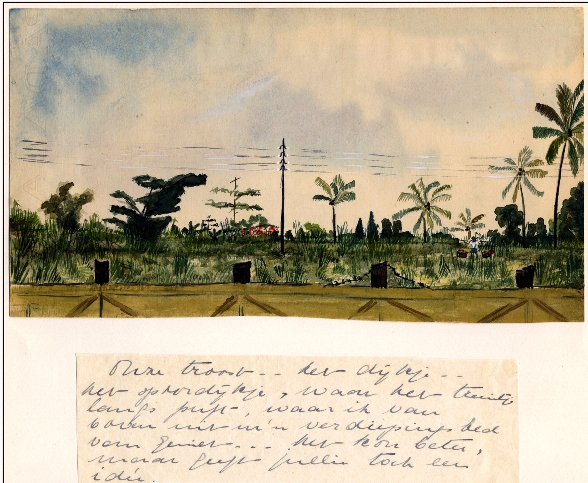 Onze troost -- het dijkje --
het spoordijkje, waar het treintje
langs puft, waar ik van
boven uit m'n verdiepingsbed
van geniet... Het kon beter,
maar geeft jullie toch een
idée.